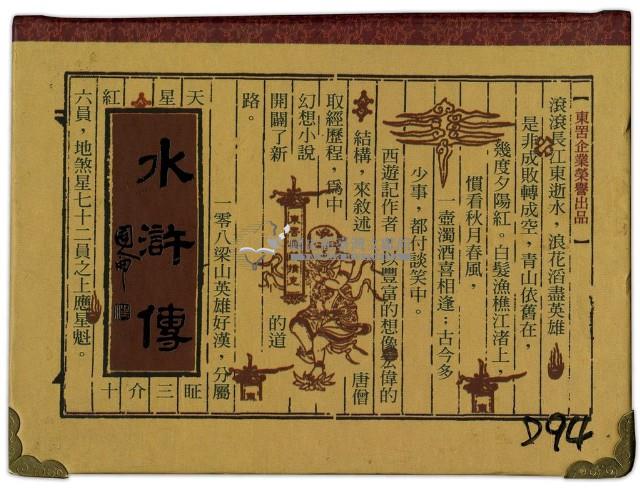 【東罡企業榮譽出品】
滾滾長江東逝水，浪花滔盡英雄
是非成敗轉成空，青山依舊在，
幾度夕陽紅。白髮漁樵江渚上，
慣看秋月春風，
一壺濁酒喜相逢；古今多
少事，都付談笑中。
西遊記作者
豐富的想像宏偉的
結構，來敘述
唐僧
取經歷程，為中
幻想小說
開闢了新
的道
路。
一零八梁山英雄好漢，分屬
天星紅
水滸傳
十介三眐
六員，地煞星七十二員之上應星魁。
D94